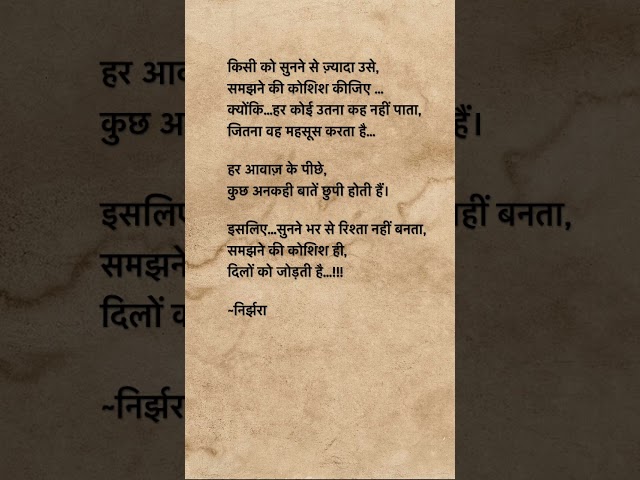 किसी को सुनने से ज़्यादा उसे,
समझने की कोशिश कीजिए ...
क्योंकि...हर कोई उतना कह नहीं पाता,
जितना वह महसूस करता है...
हर आवाज़ के पीछे,
कुछ अनकही बातें छुपी होती हैं।
इसलिए...सुनने भर से रिश्ता नहीं बनता,
समझने की कोशिश ही,
दिलों को जोड़ती है...!!!
~निर्झरा